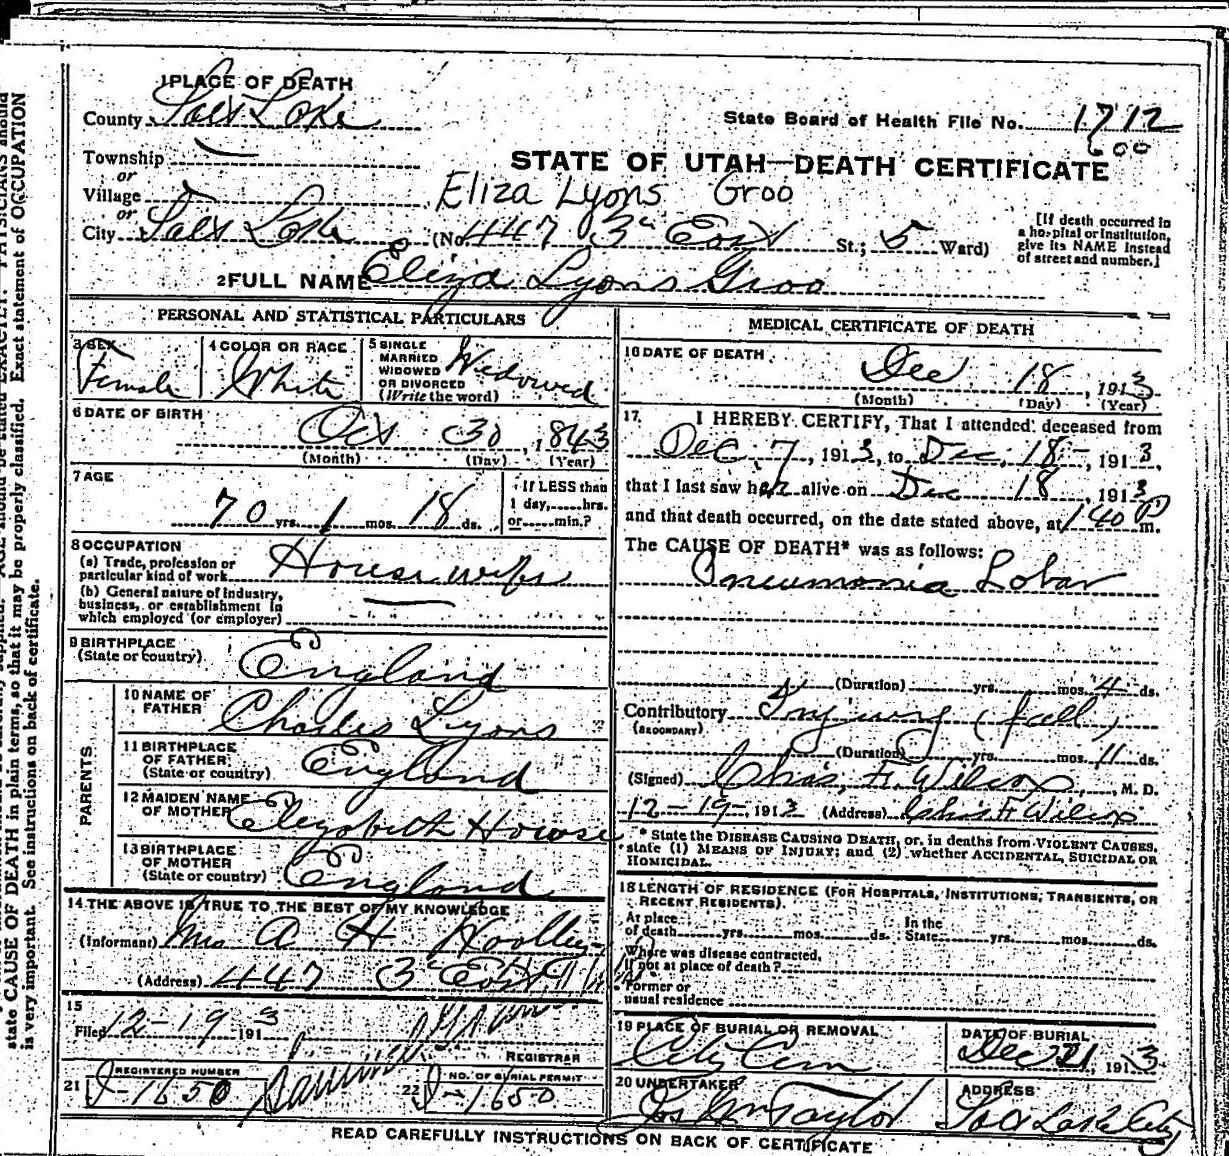 1 PLACE OF DEATH
County Salt Lake
State Board of Health File No. 1712
600
Township
or
Village
or
City Salt Lake
STATE OF UTAH—DEATH CERTIFICATE
Eliza Lyons Groo
(No. 447 3rd East St.; 5 Ward)
[If death occurred in
a hospital or institution,
give its NAME instead
of street and number.]
2 FULL NAME Eliza Lyons Groo
PERSONAL AND STATISTICAL PARTICULARS
3 SEX
Female
4 COLOR OR RACE
White
5 SINGLE
MARRIED
WIDOWED
OR DIVORCED
(Write the word)
Widowed
6 DATE OF BIRTH
Oct 30, 1843
(Month) (Day) (Year)
7 AGE
70 yrs. 1 mos. 18 ds.
If LESS than
1 day,......hrs.
or......min.?
8 OCCUPATION
(a) Trade, profession or
particular kind of work
House wife
(b) General nature of industry,
business, or establishment in
which employed (or employer)
9 BIRTHPLACE
(State or country)
England
PARENTS
10 NAME OF
FATHER
Charles Lyons
11 BIRTHPLACE
OF FATHER
(State or country)
England
12 MAIDEN NAME
OF MOTHER
Elizabeth Howse
13 BIRTHPLACE
OF MOTHER
(State or country)
England
14 THE ABOVE IS TRUE TO THE BEST OF MY KNOWLEDGE
(Informant) Mrs A H Woolley
(Address) 447 3d East
15
Filed 12-19 1913
REGISTRAR
21 REGISTERED NUMBER
J-1650
22 NO. OF BURIAL PERMIT
J-1650
MEDICAL CERTIFICATE OF DEATH
16 DATE OF DEATH
Dec 18, 1913
(Month) (Day) (Year)
17. I HEREBY CERTIFY, That I attended deceased from
Dec, 7, 1913, to Dec. 18-, 1913,
that I last saw her alive on Dec 18, 1913
and that death occurred, on the date stated above, at 1 40 P m.
The CAUSE OF DEATH* was as follows:
Pneumonia Lobar
(Duration) yrs. mos. 4 ds.
Contributory Injury (fall)
(SECONDARY)
(Duration) yrs. mos. 11 ds.
(Signed) Chas, F. Wilcox, M. D.
12-19-, 1913 (Address) Chas F Wilcox
* State the DISEASE CAUSING DEATH, or, in deaths from VIOLENT CAUSES,
state (1) MEANS OF INJURY; and (2) whether ACCIDENTAL, SUICIDAL OR
HOMICIDAL.
18 LENGTH OF RESIDENCE (FOR HOSPITALS, INSTITUTIONS, TRANSIENTS, OR
RECENT RESIDENTS).
At place
of death yrs. mos. ds.
In the
State yrs. mos. ds.
Where was disease contracted,
If not at place of death?
Former or
usual residence
19 PLACE OF BURIAL OR REMOVAL
City Cem
DATE OF BURIAL
Dec 21, 1913
20 UNDERTAKER
Jos Wm Taylor
ADDRESS
Salt Lake City
READ CAREFULLY INSTRUCTIONS ON BACK OF CERTIFICATE
state CAUSE OF DEATH in plain terms, so that it may be properly classified. Exact statement of OCCUPATION
is very important. See instructions on back of certificate.